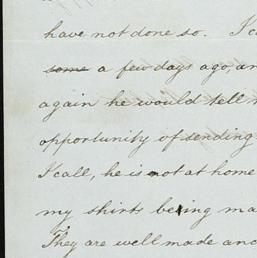 have not done so. I ca
some a few days ago, an
again he would tell
opportunity of sending
I call, he is not at home
my shirts being ma
They are well made and